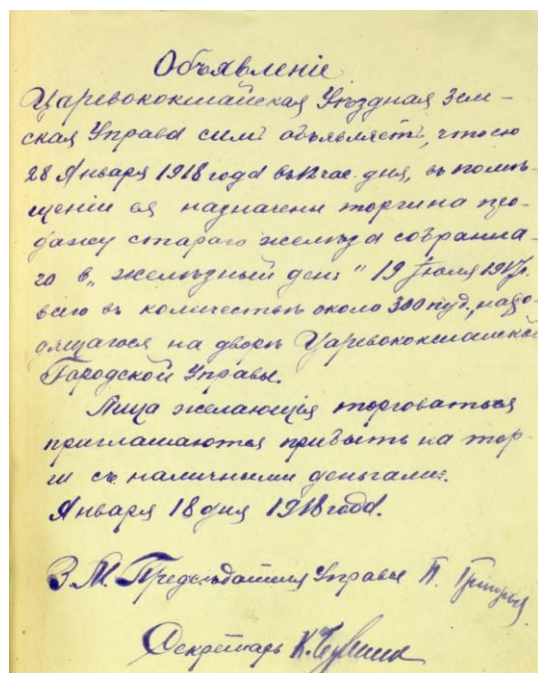 Объявленіе
Царевококшайская Уѣздная Зем-
ская Управа симъ объявляетъ, что ею
28 Января 1918 года въ 12 час. дня, въ помѣ-
щеніи ея назначены торги на про-
дажу стараго желѣза собранна-
го в „желѣзный день" 19 Іюля 1917 г.
всего въ количествѣ около 300 пуд., нахо-
дящагося на дворѣ Царевококшайской
Городской Управы.
Лица желающія торговаться
приглашаются прибыть на тор-
ги съ наличными деньгами.
Января 18 дня 1918 года.
З. М. Предсѣдателя Управы П.
Секретарь К.